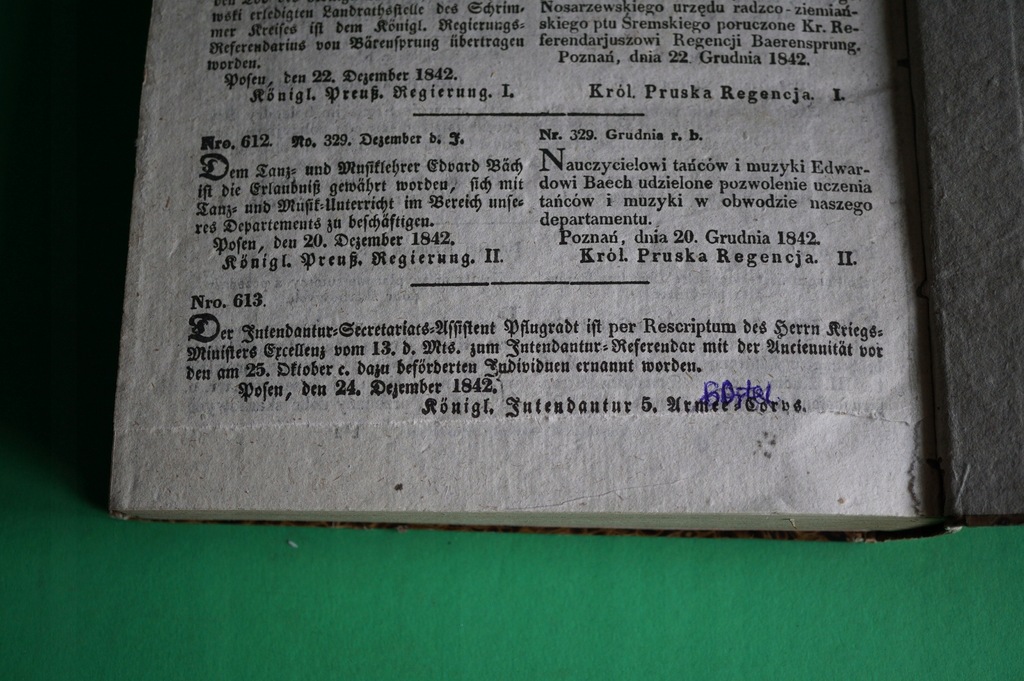 wski erledigten Landrathsstelle des Schrim-
mer Kreises ist dem Königl. Regierungs-
Referendarius von Bärensprung übertragen
worden.
Posen, den 22. Dezember 1842.
Königl. Preuß. Regierung. I.
Nosarzewskiego urzędu radzco-ziemiań-
skiego ptu Sremskiego poruczone Kr. Re-
ferendarjuszowi Regencji Baerensprung.
Poznań, dnia 22 Grudnia 1842.
Król. Pruska Regencja. I.
Nro. 612. No. 329. Dezember d. J.
Dem Tanz- und Musiklehrer Edvard Bäch
ist die Erlaubniß gewährt worden, sich mit
Tanz- und Musik-Unterricht im Bereich unse-
res Departements zu beschäftigen.
Posen, den 20. Dezember 1842.
Königl. Preuß. Regierung. II.
Nr. 329. Grudnia r. b.
Nauczycielowi tańców i muzyki Edwar-
dowi Baech udzielone pozwolenie uczenia
tańców i muzyki w obwodzie naszego
departamentu.
Poznań, dnia 20. Grudnia 1842.
Król. Pruska Regencja. II.
Nro. 613.
Der Intendantur-Secretariats-Assistent Pflugradt ist per Rescriptum des Herrn Kriegs-
Ministers Excellenz vom 13. d. Mts. zum Intendantur-Referendar mit der Anciennität vor
den am 25. Oktober c. dazu beförderten Individuen ernannt worden.
Posen, den 24. Dezember 1842.
Königl. Intendantur 5. Armee-Corps.